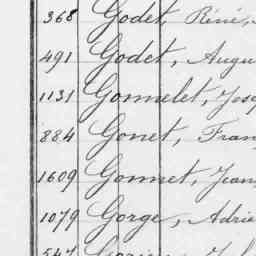 368 Godet, Réné,
491 Godet, Augu
1131 Gommelet, Jos
884 Gonet, Fran
1609 Gonnet, Jean
1079 Gorge, Adrie
547